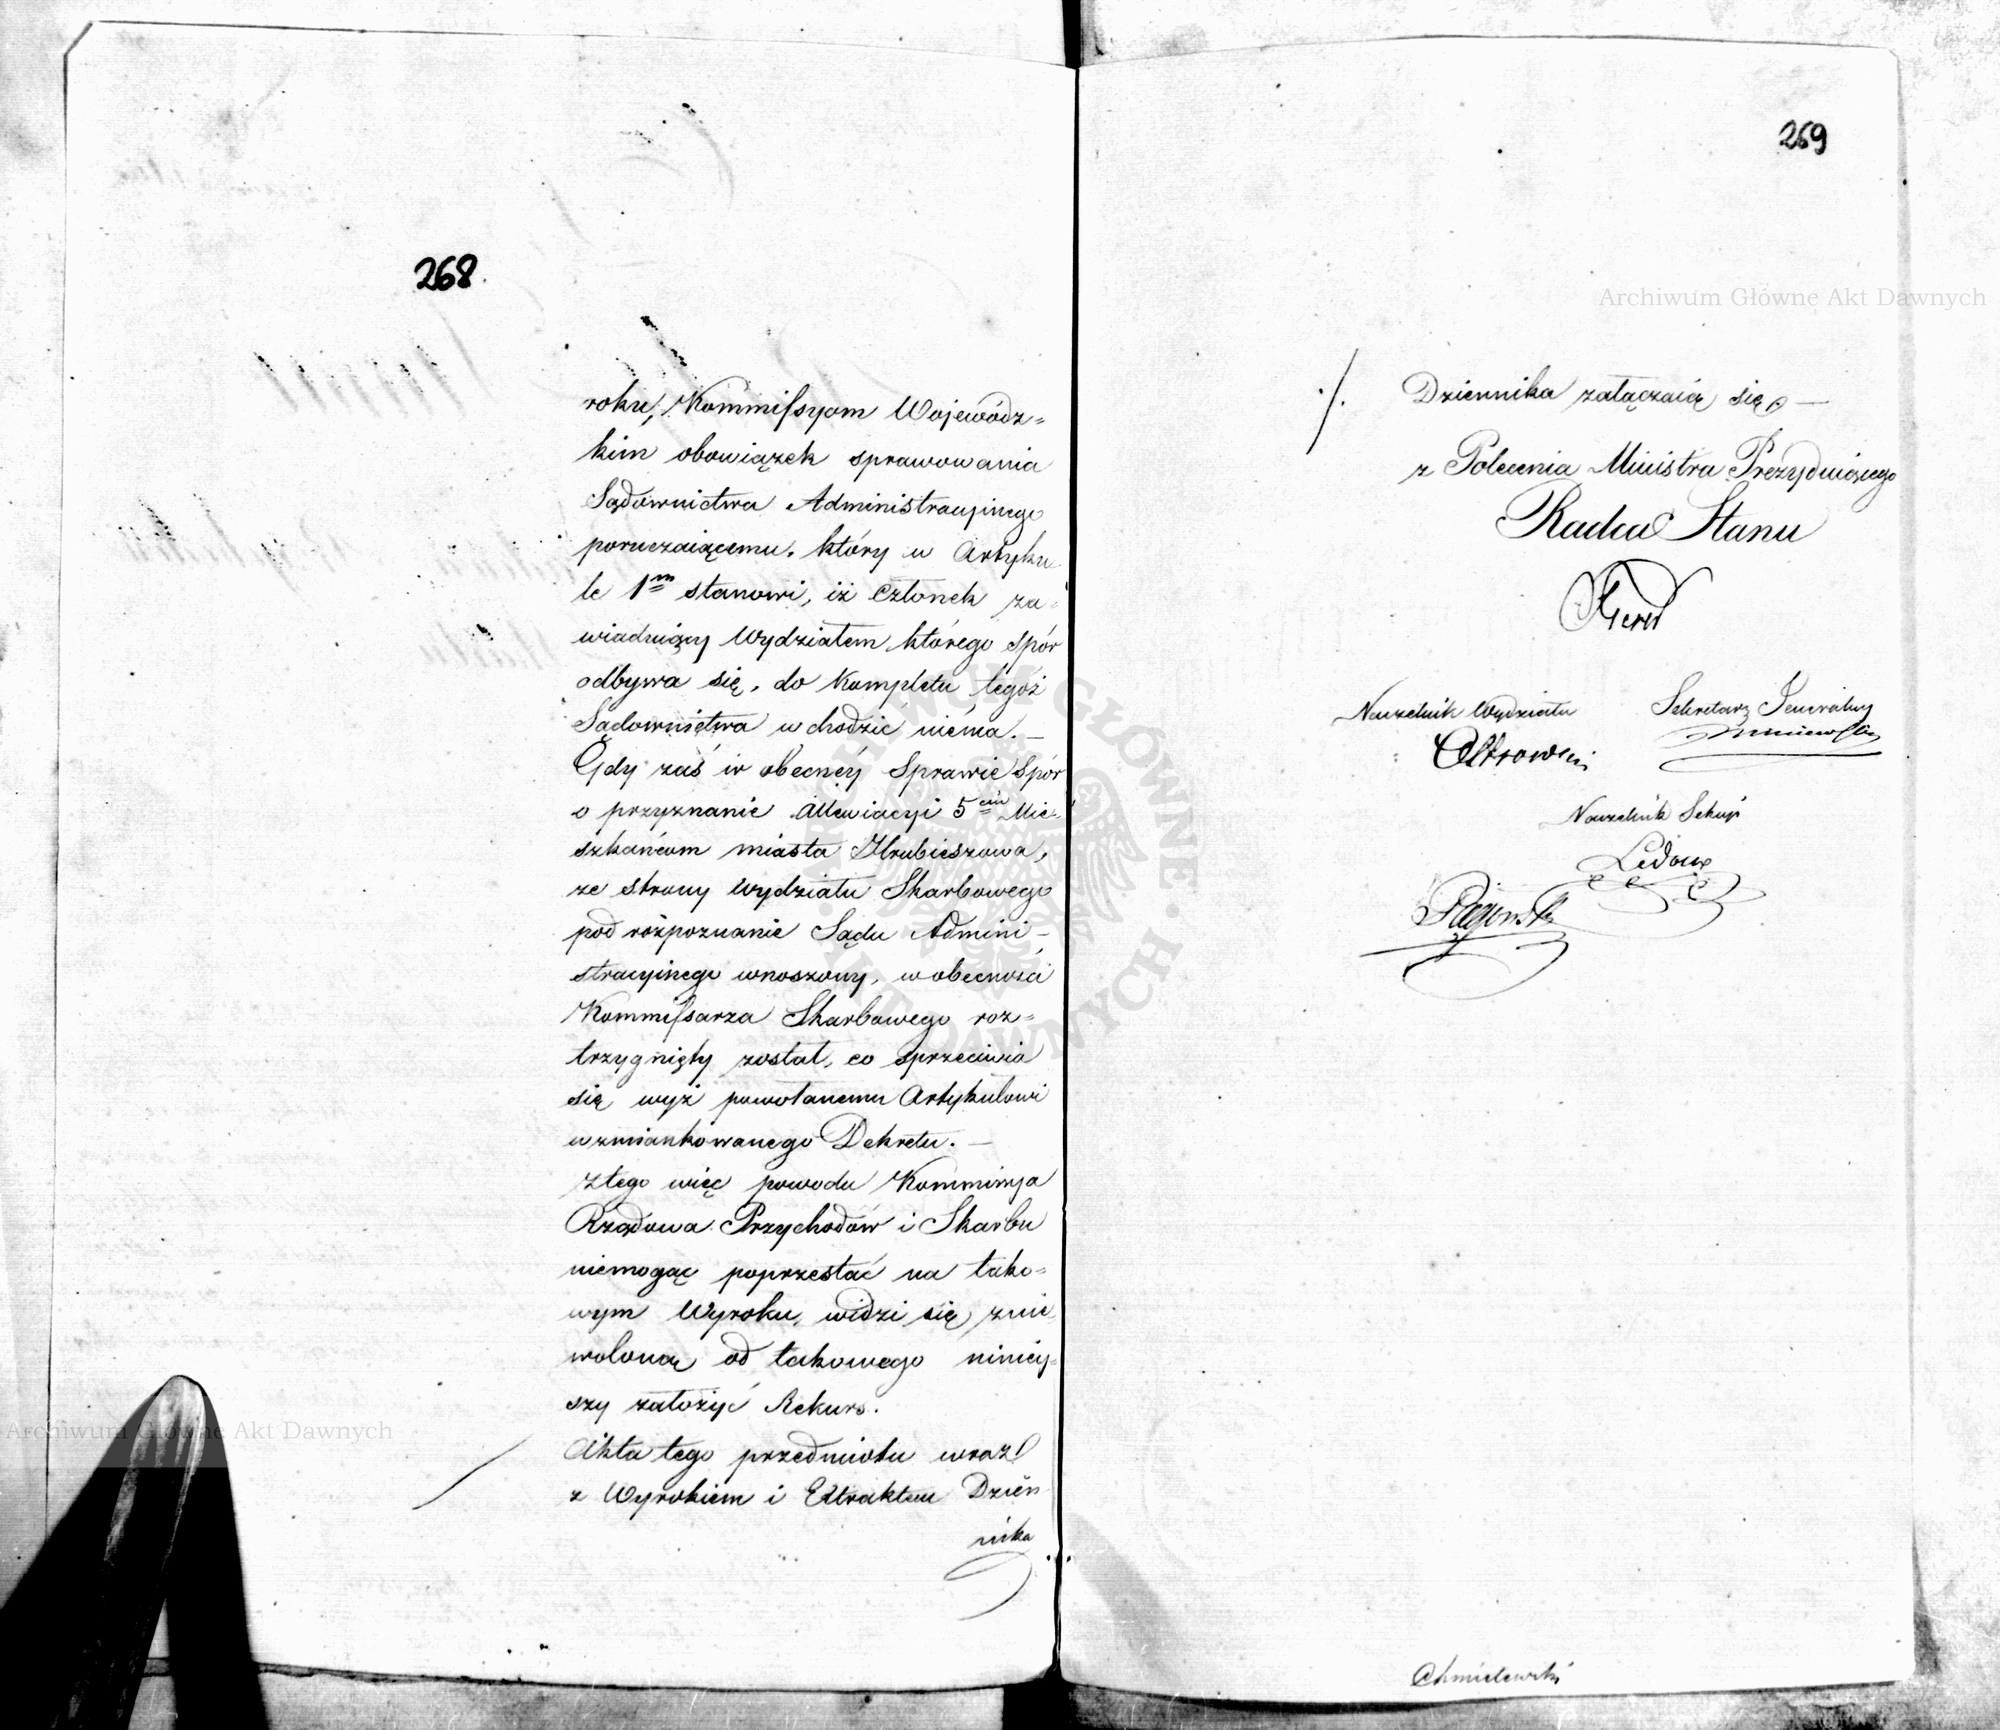 268
roku, Kommissyom Wojewódz=
kim obowiązek sprawowania
Sądownictwa Administracyinego
poruczaiącemu, który w Artyku
le 1m stanowi, iż Członek za=
wiaduiący Wydziałem którego spór
odbywa się, do Kompletu tegoż
Sądownictwa wchodzić niéma. —
Gdy zaś w obecnéy Sprawie Spór
o przyznanie Allewiacyi 5ciu Mie=
szkańcom miasta Hrubieszowa,
ze strony Wydziału Skarbowego
pod rozpoznanie Sądu Admini-
stracyinego wnoszony, w obecności
Kommissarza Skarbowego roz=
trzygnięty został, co sprzeciwia
się wyż powołanemu Artykułowi
wzmiankowanego Dekretu. —
Z tego więc powodu Kommissya
Rządowa Przychodów i Skarbu
niemogąc poprzestać na tako=
wym Wyroku, widzi się znie=
woloną od takowego niniey=
szy założyć Rekurs.
Akta tego przedmiotu wraz
z Wyrokiem i Extraktem Dzien
nika
269
Archiwum Główne Akt Dawnych
./. Dziennika załączaią się —
z Polecenia Ministra Prezyduiącego
Radca Stanu
Naczelnik Wydziału
Sekretarz Jeneralny
Ostrowski
Naczelnik Sekcyi
Ledoux
Chmielewski
Archiwum Główne Akt Dawnych
ARCHIWUM GŁÓWNE AKT DAWNYCH